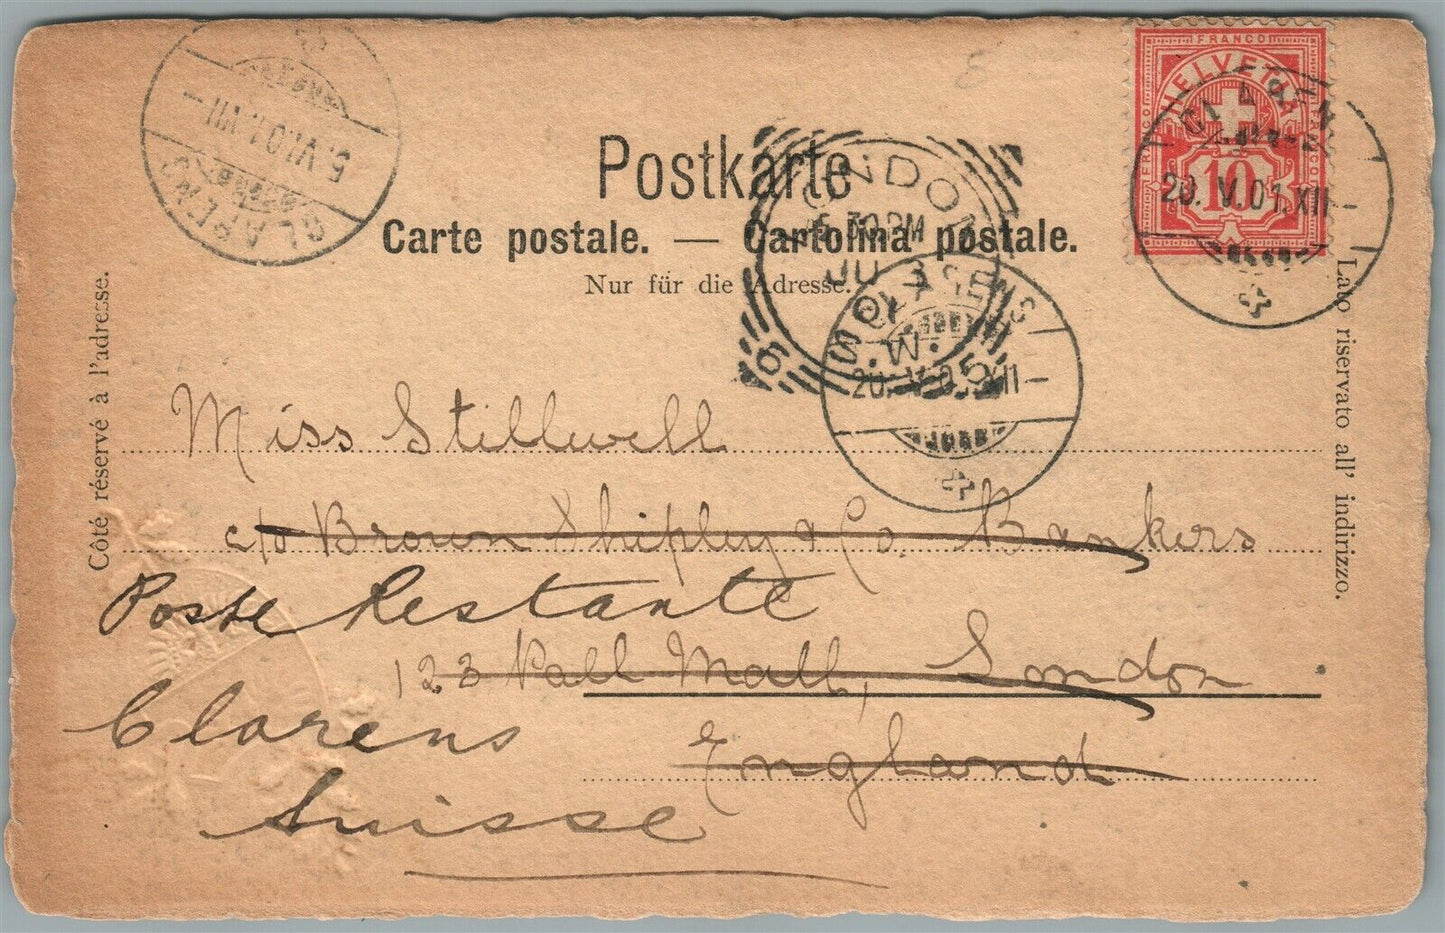 FRANCO
HELVETIA
FRANCO
10
CLARENS
20. V.01.XII
CLARENS
5.VI.01.VII
Postkarte
Carte postale. — Cartolina postale.
Nur für die Adresse.
LONDON
5 30 PM
JU 3
S.W.
6
CLARENS
20. V. 0 XII
Côté réservé à l'adresse.
Lato riservato all' indirizzo.
Miss Stillwell
c/o Brown Shipley & Co. Bankers
Poste Restante
123 Pall Mall, London
Clarens
England
Suisse